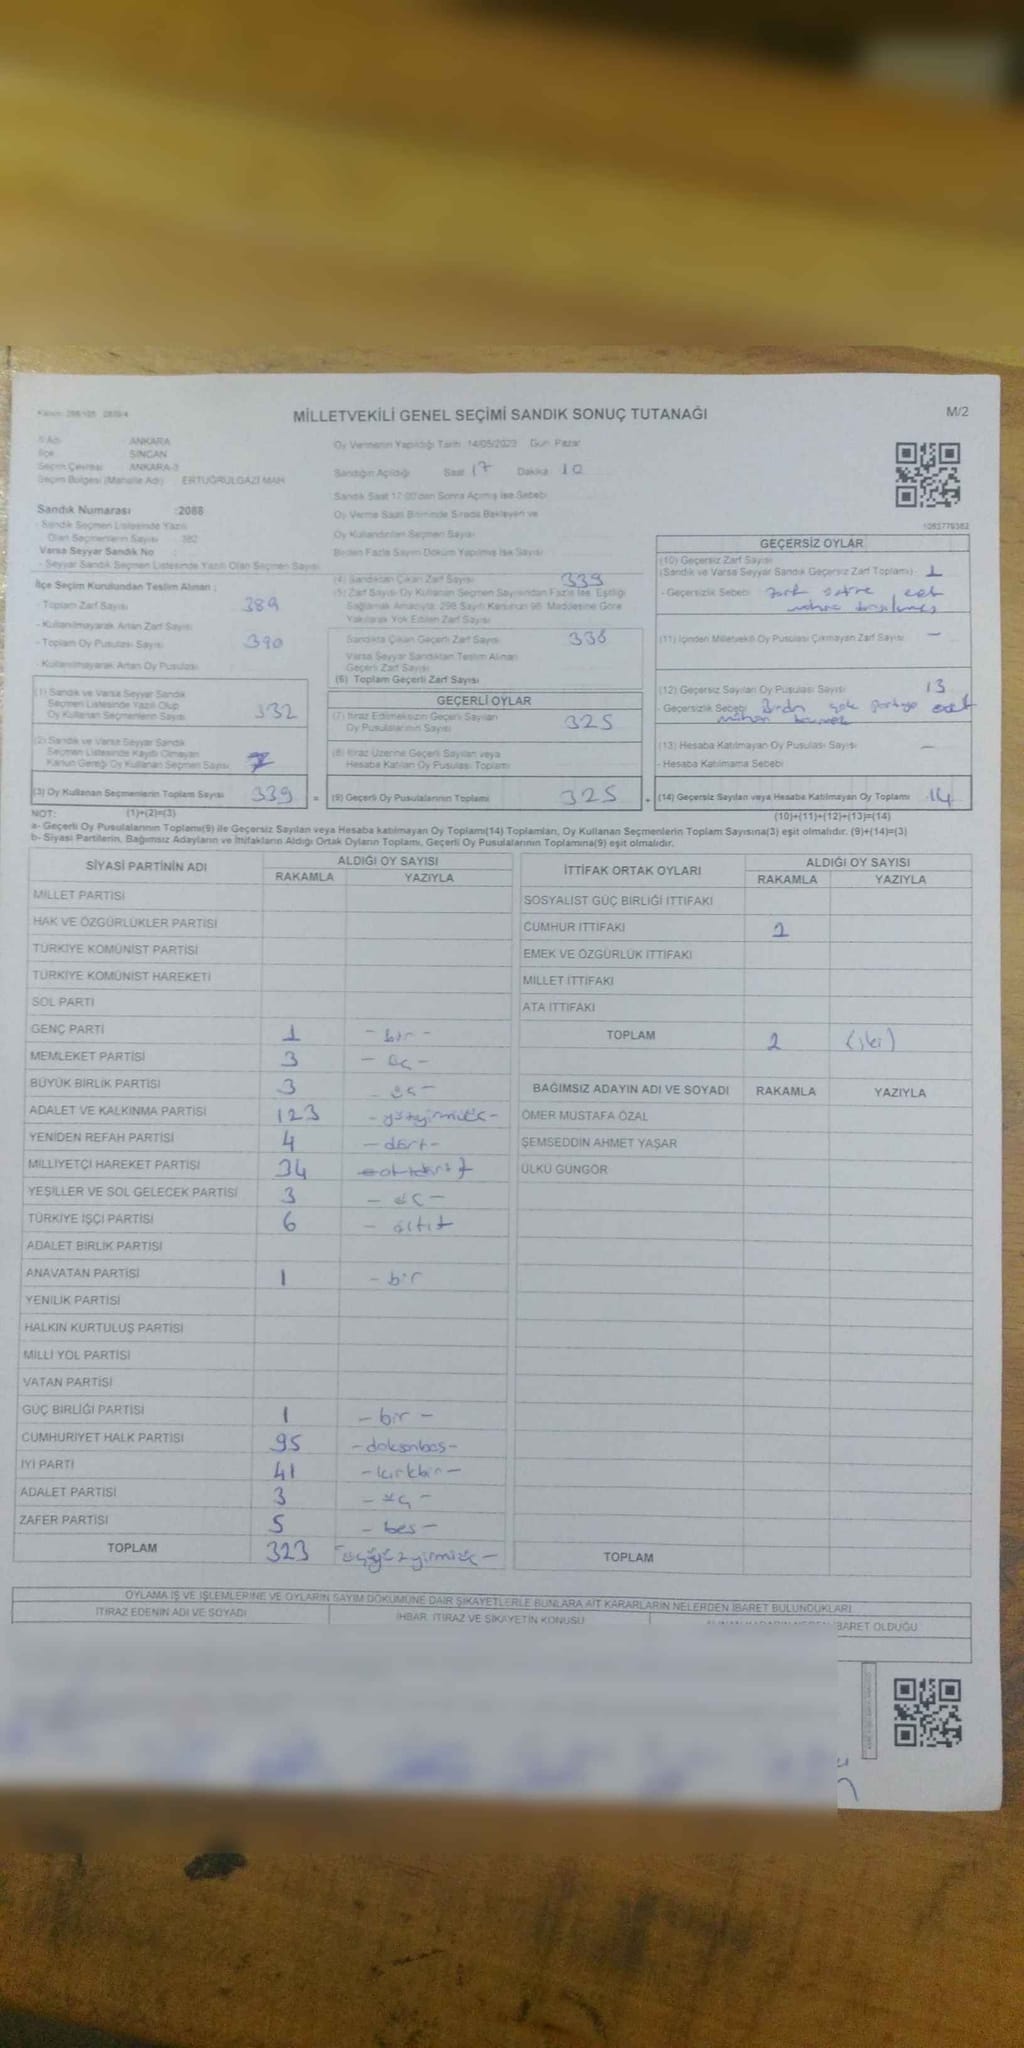 MİLLETVEKİLİ GENEL SEÇİMİ SANDIK SONUÇ TUTANAĞI
M/2
İl Adı : ANKARA
İlçe : SİNCAN
Seçim Çevresi : ANKARA-3
Seçim Bölgesi (Mahalle Adı) : ERTUĞRULGAZİ MAH
Oy Vermenin Yapıldığı Tarih :14/05/2023 Gün: Pazar
Sandığın Açıldığı Saat 17 Dakika 10
Sandık Saat 17:00'den Sonra Açılmış İse Sebebi
Oy Verme Saati Bitiminde Sırada Bekleyen ve
Oy Kullandırılan Seçmen Sayısı
Birden Fazla Sayım Döküm Yapılmış İse Sayısı
Sandık Numarası :2088
- Sandık Seçmen Listesinde Yazılı
Olan Seçmenlerin Sayısı : 382
Varsa Seyyar Sandık No :
- Seyyar Sandık Seçmen Listesinde Yazılı Olan Seçmen Sayısı
İlçe Seçim Kurulundan Teslim Alınan ;
- Toplam Zarf Sayısı 389
- Kullanılmayarak Artan Zarf Sayısı
- Toplam Oy Pusulası Sayısı 390
- Kullanılmayarak Artan Oy Pusulası
(1) Sandık ve Varsa Seyyar Sandık
Seçmen Listesinde Yazılı Olup
Oy Kullanan Seçmenlerin Sayısı 332
(2) Sandık ve Varsa Seyyar Sandık
Seçmen Listesinde Kayıtlı Olmayan
Kanun Gereği Oy Kullanan Seçmen Sayısı 7
(3) Oy Kullanan Seçmenlerin Toplam Sayısı 339
(1)+(2)=(3)
(4) Sandıktan Çıkan Zarf Sayısı 339
(5) Zarf Sayısı Oy Kullanan Seçmen Sayısından Fazla İse, Eşitliği
Sağlamak Amacıyla; 298 Sayılı Kanunun 98. Maddesine Göre
Yakılarak Yok Edilen Zarf Sayısı
Sandıkta Çıkan Geçerli Zarf Sayısı 338
Varsa Seyyar Sandıktan Teslim Alınan
Geçerli Zarf Sayısı
(6) Toplam Geçerli Zarf Sayısı
GEÇERLİ OYLAR
(7) İtiraz Edilmeksizin Geçerli Sayılan
Oy Pusulalarının Sayısı 325
(8) İtiraz Üzerine Geçerli Sayılan veya
Hesaba Katılan Oy Pusulası Toplamı
= (9) Geçerli Oy Pusulalarının Toplamı 325
1082779382
GEÇERSİZ OYLAR
(10) Geçersiz Zarf Sayısı
(Sandık ve Varsa Seyyar Sandık Geçersiz Zarf Toplamı) 1
- Geçersizlik Sebebi Zarf evet
(11) İçinden Milletvekili Oy Pusulası Çıkmayan Zarf Sayısı —
(12) Geçersiz Sayılan Oy Pusulası Sayısı 13
- Geçersizlik Sebebi Birden çok partiye evet
(13) Hesaba Katılmayan Oy Pusulası Sayısı —
- Hesaba Katılmama Sebebi
+ (14) Geçersiz Sayılan veya Hesaba Katılmayan Oy Toplamı 14
(10)+(11)+(12)+(13)=(14)
NOT:
a- Geçerli Oy Pusulalarının Toplamı(9) ile Geçersiz Sayılan veya Hesaba katılmayan Oy Toplamı(14) Toplamları, Oy Kullanan Seçmenlerin Toplam Sayısına(3) eşit olmalıdır. (9)+(14)=(3)
b- Siyasi Partilerin, Bağımsız Adayların ve İttifakların Aldığı Ortak Oyların Toplamı, Geçerli Oy Pusulalarının Toplamına(9) eşit olmalıdır.
SİYASİ PARTİNİN ADI ALDIĞI OY SAYISI
RAKAMLA YAZIYLA
MİLLET PARTİSİ
HAK VE ÖZGÜRLÜKLER PARTİSİ
TÜRKİYE KOMÜNİST PARTİSİ
TÜRKİYE KOMÜNİST HAREKETİ
SOL PARTİ
GENÇ PARTİ 1 - bir -
MEMLEKET PARTİSİ 3 - üç -
BÜYÜK BİRLİK PARTİSİ 3 - üç -
ADALET VE KALKINMA PARTİSİ 123 - yüzyirmiüç -
YENİDEN REFAH PARTİSİ 4 - dört -
MİLLİYETÇİ HAREKET PARTİSİ 34
YEŞİLLER VE SOL GELECEK PARTİSİ 3 - üç -
TÜRKİYE İŞÇİ PARTİSİ 6 - altı -
ADALET BİRLİK PARTİSİ
ANAVATAN PARTİSİ 1 - bir
YENİLİK PARTİSİ
HALKIN KURTULUŞ PARTİSİ
MİLLİ YOL PARTİSİ
VATAN PARTİSİ
GÜÇ BİRLİĞİ PARTİSİ 1 - bir -
CUMHURİYET HALK PARTİSİ 95 - doksanbeş -
İYİ PARTİ 41 - kırkbir -
ADALET PARTİSİ 3 - üç -
ZAFER PARTİSİ 5 - beş -
TOPLAM 323 - üçyüzyirmiüç -
İTTİFAK ORTAK OYLARI ALDIĞI OY SAYISI
RAKAMLA YAZIYLA
SOSYALİST GÜÇ BİRLİĞİ İTTİFAKI
CUMHUR İTTİFAKI 2
EMEK VE ÖZGÜRLÜK İTTİFAKI
MİLLET İTTİFAKI
ATA İTTİFAKI
TOPLAM 2 (iki)
BAĞIMSIZ ADAYIN ADI VE SOYADI RAKAMLA YAZIYLA
ÖMER MUSTAFA ÖZAL
ŞEMSEDDİN AHMET YAŞAR
ÜLKÜ GÜNGÖR
TOPLAM
OYLAMA İŞ VE İŞLEMLERİNE VE OYLARIN SAYIM DÖKÜMÜNE DAİR ŞİKAYETLERLE BUNLARA AİT KARARLARIN NELERDEN İBARET BULUNDUKLARI
İTİRAZ EDENİN ADI VE SOYADI
İHBAR, İTİRAZ VE ŞİKAYETİN KONUSU
İBARET OLDUĞU